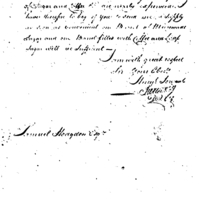 of Sugar and Coffee &c are nearly expended I
have therefore to beg of you to send me a supply
as soon as convenient one Barrel of Muscovado
Sugar and one Barrel filled with Coffee and Loaf
Sugar will be sufficient—
I am with great respect
Sir Your Obt.
Samuel Hodgdon Esqr